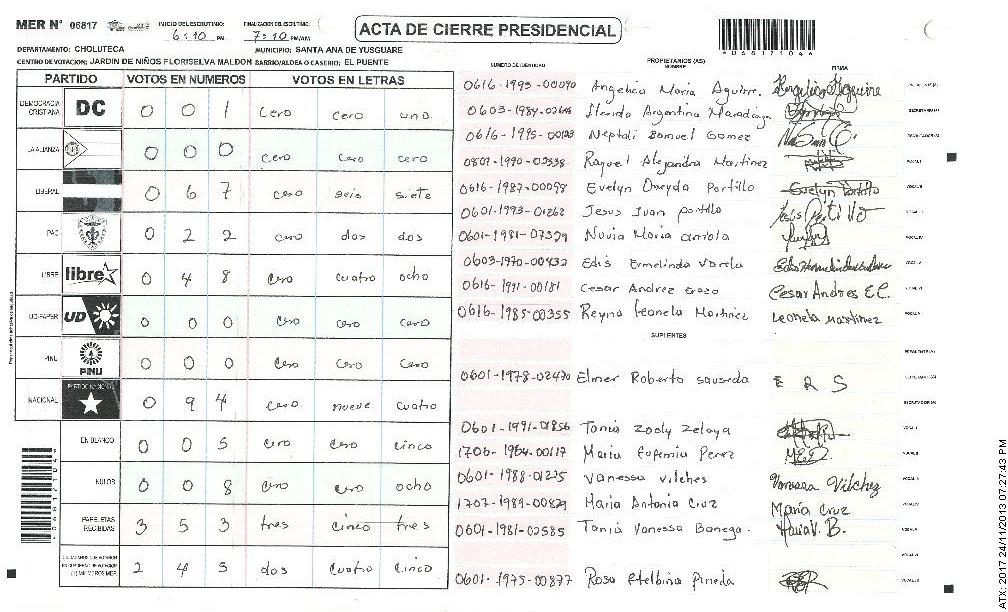 MER N° 06817 INICIO DEL ESCRUTINIO: 6:10 PM FINALIZACION DEL ESCRUTINIO: 7:10 PM/AM ACTA DE CIERRE PRESIDENCIAL
DEPARTAMENTO: CHOLUTECA MUNICIPIO: SANTA ANA DE YUSGUARE
CENTRO DE VOTACION: JARDIN DE NIÑOS FLORISELVA MALDON BARRIO/ALDEA O CASERIO: EL PUENTE
PARTIDO VOTOS EN NUMEROS VOTOS EN LETRAS
DEMOCRACIA CRISTIANA DC 0 0 1 cero cero uno
LA ALIANZA 0 0 0 cero cero cero
LIBERAL 0 6 7 cero seis siete
PAC 0 2 2 cero dos dos
LIBRE libre 0 4 8 cero cuatro ocho
UD-FAPER UD 0 0 0 cero cero cero
PINU PINU 0 0 0 cero cero cero
NACIONAL PARTIDO NACIONAL 0 9 4 cero nueve cuatro
EN BLANCO 0 0 5 cero cero cinco
NULOS 0 0 8 cero cero ocho
PAPELETAS RECIBIDAS 3 5 3 tres cinco tres
2 4 5 dos cuatro cinco
NUMERO DE IDENTIDAD PROPIETARIOS (AS) NOMBRE FIRMA
0616-1995-00090 Angelica Maria Aguirre.
Argentina Maradiaga
Neptali Samuel Gomez
Raquel Alejandra Martinez
0616-1987-00098 Evelyn Oneyda Portillo Evelyn Portillo
0601-1993-01262 Jesus Juan Portillo
0601-1981-07329 Nuvia Maria Arriola
0603-1970-00432 Edis Ermelinda Varela
0616-1991-00181 Cesar Andrez Cesar Andres E.C.
0616-1985-00355 Reyna Leonela Martinez Leonela Martinez
SUPLENTES
0601-1978-02470 Elmer Roberto Sauseda E R S
0601-1991-01856 Tania Zoely Zelaya
1706-1964-00117 Maria Eufemia Perez
0601-1988-01225 Vanessa Vilches Vanessa Vilchez
1707-1989-00829 Maria Antonia Cruz Maria Cruz
0601-1981-02585 Tania Vanessa Banega. Tania V. B.
0601-1975-00877 Rosa Etelbina Pineda
ATX: 2017 24/11/2013 07:27:43 PM